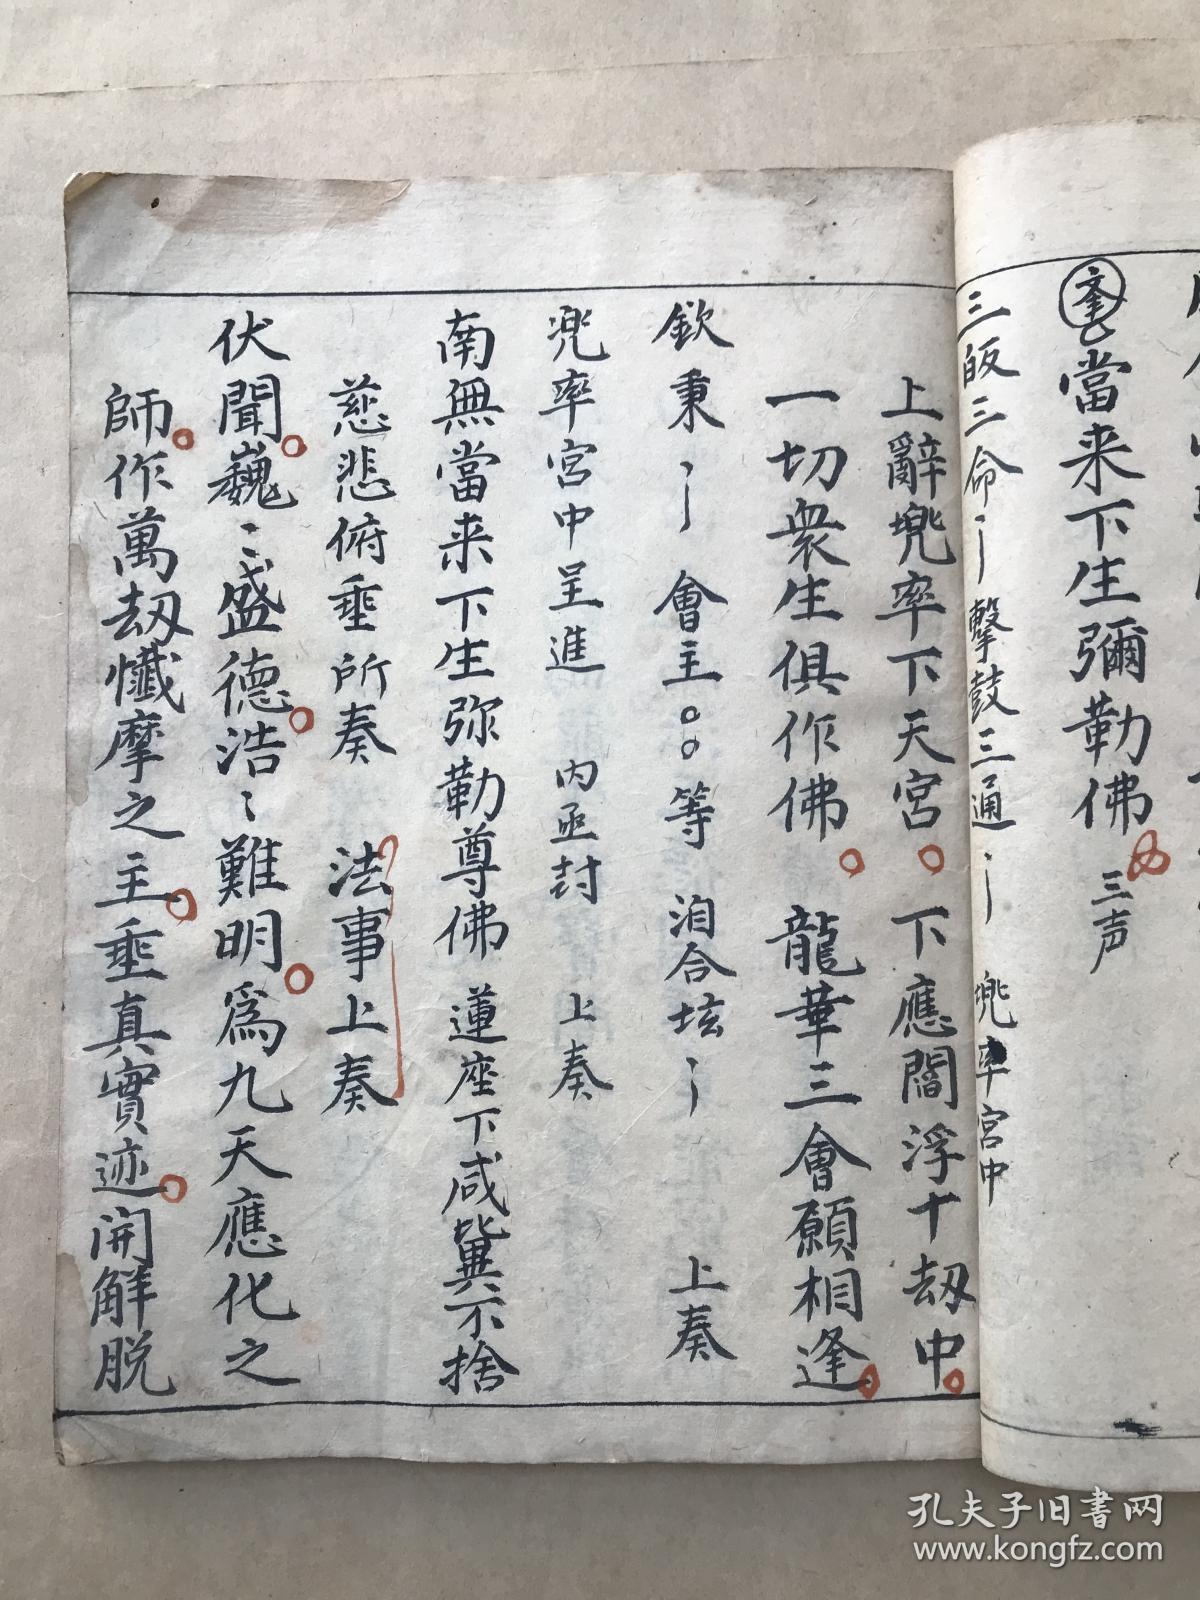 當来下生彌勒佛 三声
三皈三命 擊鼓三通 兠率宮中
上辭兠率下天宮 下應閻浮十刼中
一切衆生俱作佛 龍華三會願相逢
欽秉 會主○○等 洎合坛 上奏
兠率宮中呈進 内函封 上奏
南無當来下生弥勒尊佛 蓮座下咸兾不捨
慈悲俯垂所奏 法事上奏
伏聞巍〻盛德浩〻難明爲九天應化之
師作萬刼懺摩之主垂真實迹開解脱
孔夫子旧书网
www.kongfz.com